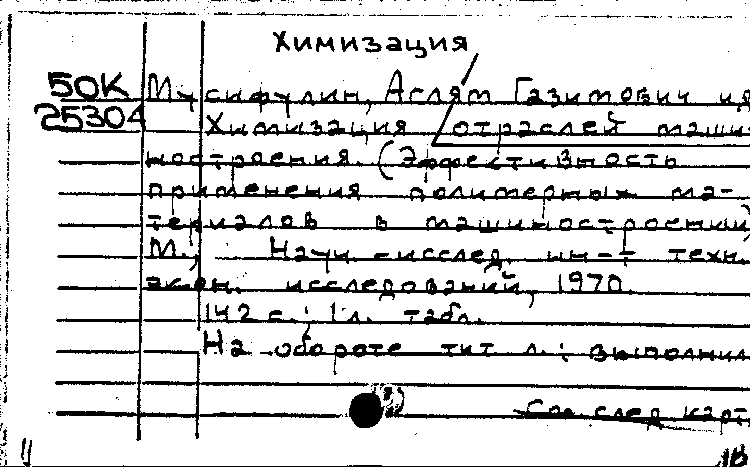 Химизация
50К Мусифулин, Аслям Газимович и др
25304 Химизация отраслей маши-
ностроения. (Эффективность
применения полимерных ма-
териалов в машиностроении)
М., Научн.-исслед. ин-т техн.
экон. исследований, 1970.
142 с.; 1 л. табл.
На обороте тит. л.: выполнил
См. след. карт.